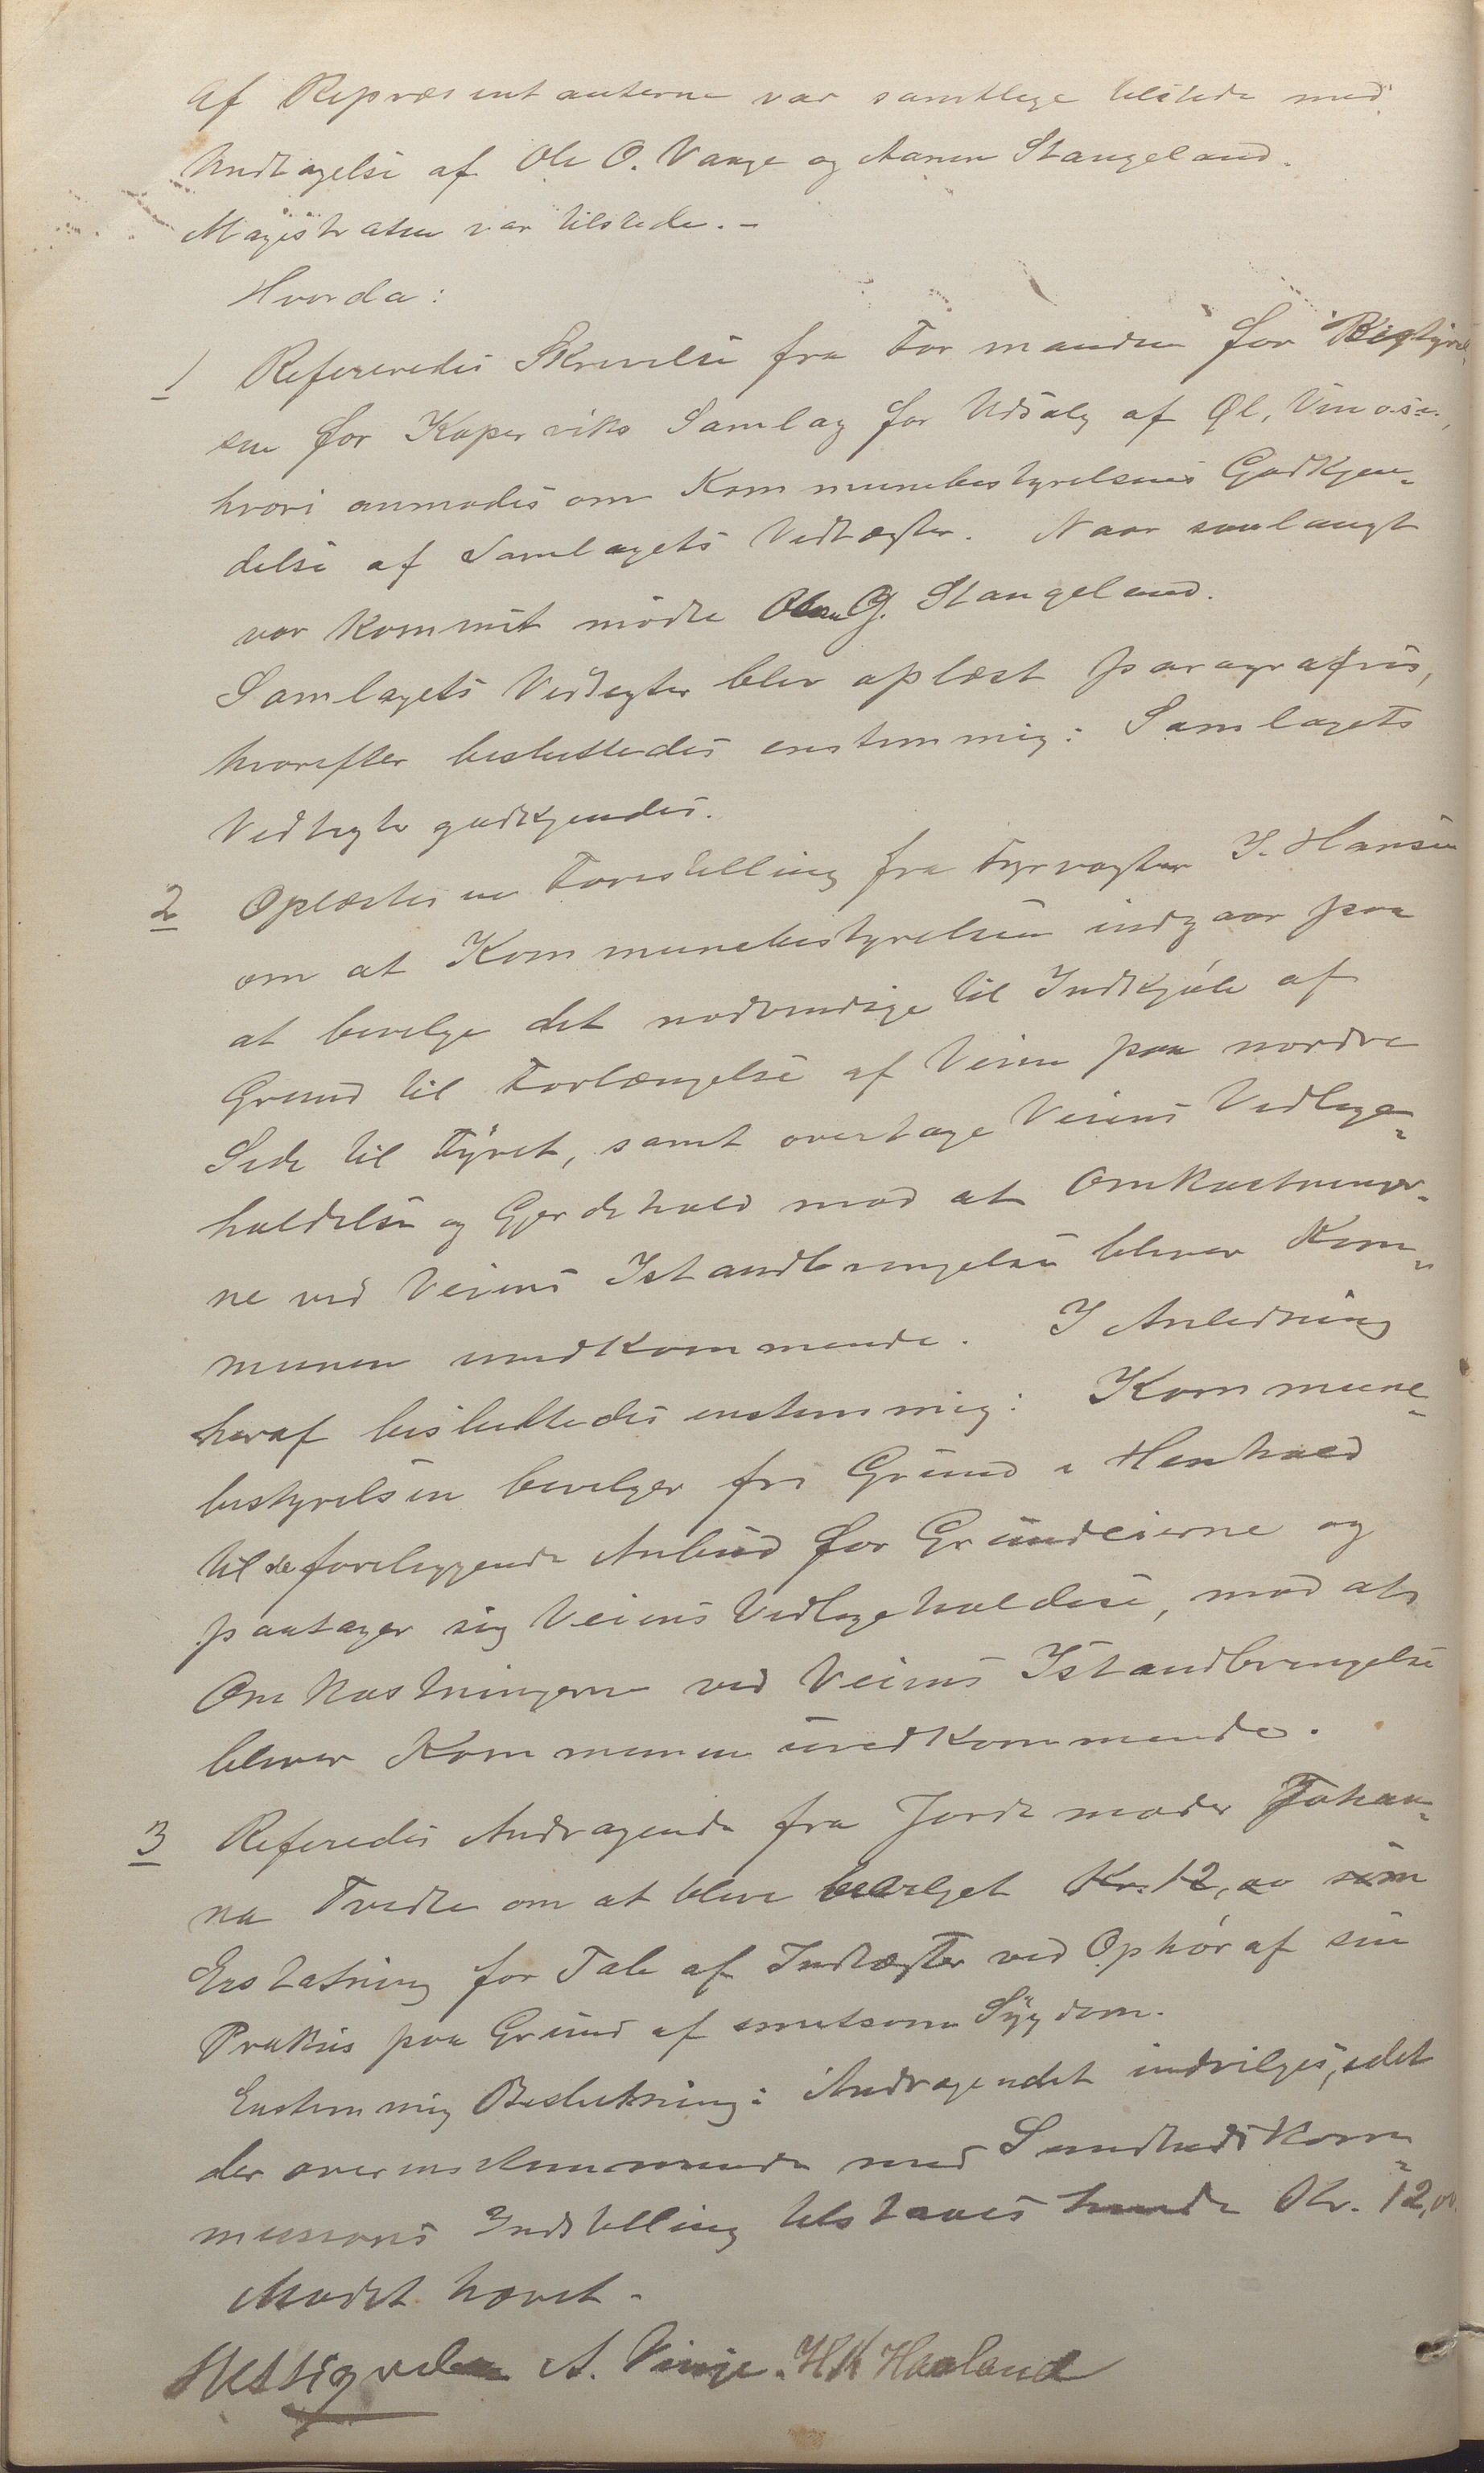 Af Repræsentanterne var samtlige tilstede med
Undtagelse af Ole O. Vange og Stangeland.
Magistraten var tilstede. -
Hvorda:
1 Refereredes Skrivelse fra Formanden for Bestyrel
sen for Koperviks Samlag for Udsalg af Øl, Vin o.s.v.,
hvori anmodes om Kommunebestyrelsens Godkjen-
delse af Samlagets Vedtægter. Naar saalangt
var kommet mødte G. Stangeland.
Samlagets Vedtegter blev oplæst paragrafvis,
hvorefter besluttedes enstemmig: Samlagets
Vedtegter godkjendes.
2 Oplæstes en Forestilling fra Fyrvogter J. Hansen
om at Kommunebestyrelsen indgaar paa
at bevilge det nødvendige til Indkjøb af
Grund til Forlængelse af Veien paa nordre
Side til Fyret, samt overtage Veiens Vedlige-
holdelse og Gjerdehold mod at Omkostninger-
ne ved Veiens Istandbringelse bliver Kom-
munen uvedkommende. I Anledning
heraf besluttedes enstemmig: Kommune-
bestyrelsen bevilger fri Grund i Henhold
til de foreliggende Anbud for Grundeierne og
paatager sig Veiens Vedligeholdese, mod at
Omkostningerne ved Veiens Istandbringelse
bliver Kommunen uvedkommende.
3 Referedes Andragende fra Jordemoder Johan-
na Tvedte om at blive bevilget Kr. 12,00 som
Erstatning for Tab af Indtægter ved Ophør af sin
Praksis paa Grund af smitsom Sygdom.
Enstemmig Beslutning: Andragendet indvilges, idet
der overensstemmende med Sundhedskom-
missions Indstilling tilstaaes hende Kr. 12,00.
Mødet hævet.
A. Vinje. H K Haaland